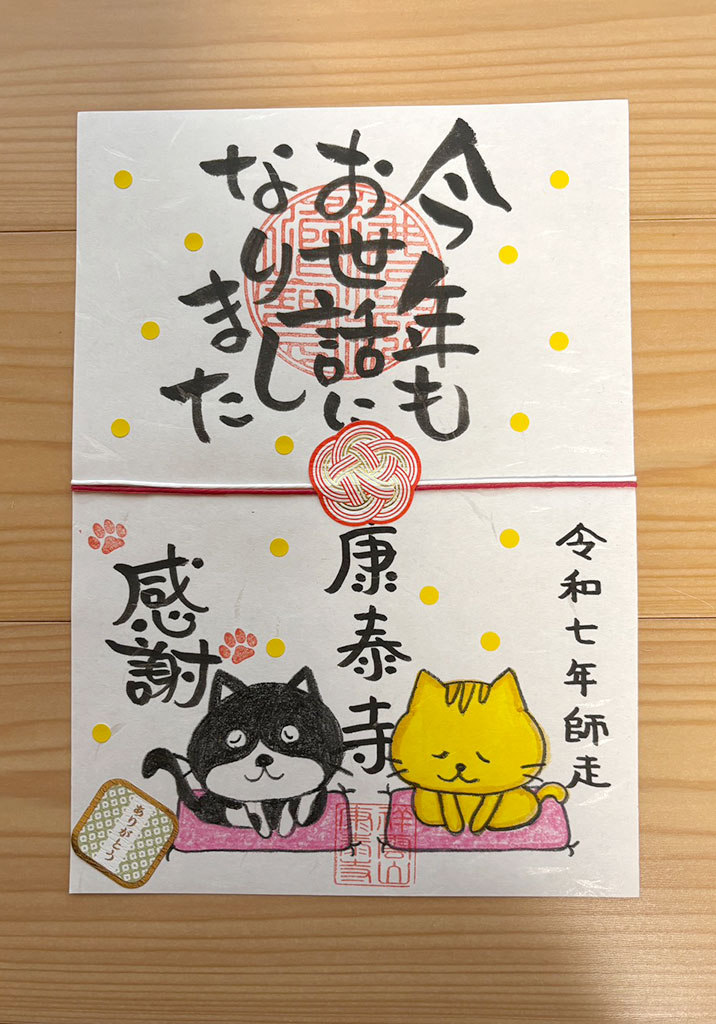 今年も
お世話に
なりまし
また
令和七年師走
康泰寺
感謝
ありがとう